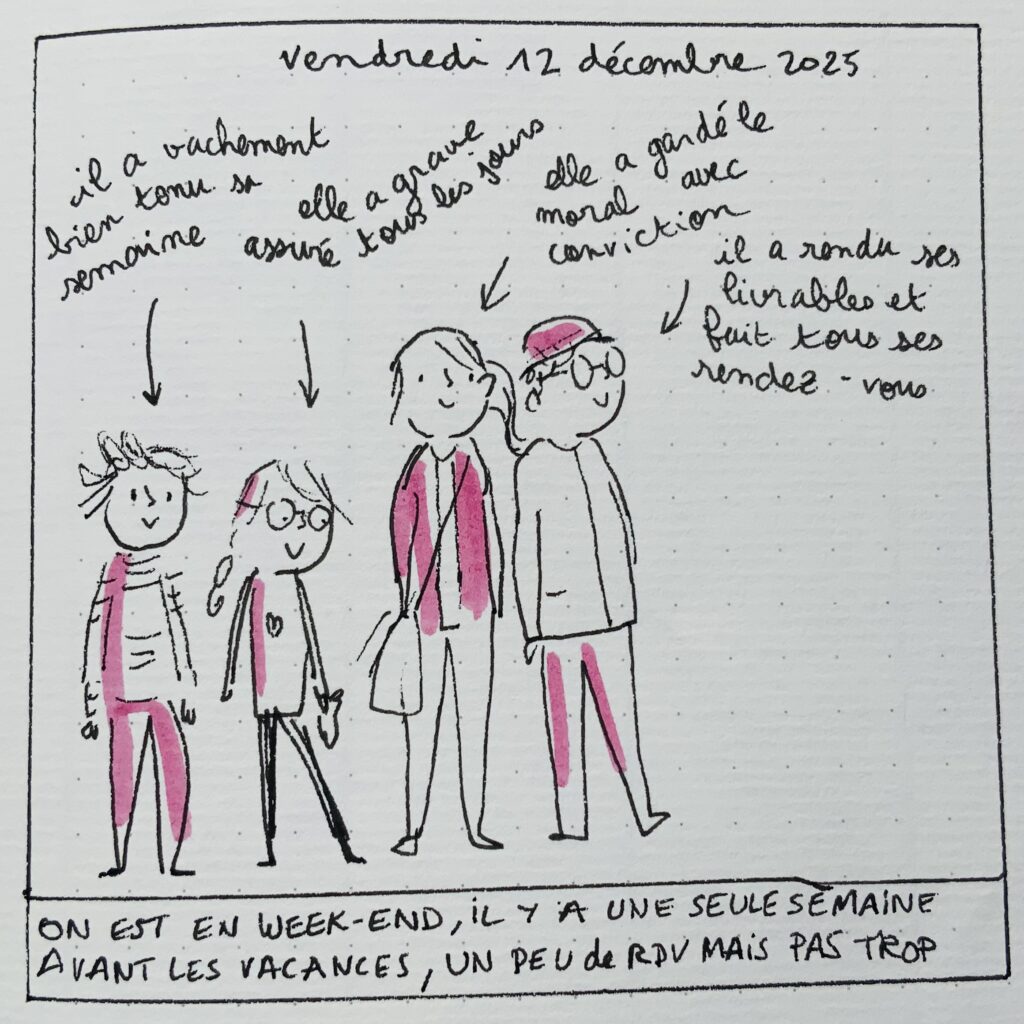 vendredi 12 décembre 2025
il a vachement
bien tenu sa
semaine
elle a grave
assuré tous les jours
elle a gardé le
moral avec
conviction
il a rendu ses
livrables et
fait tous ses
rendez-vous
ON EST EN WEEK-END, IL Y A UNE SEULE SEMAINE
AVANT LES VACANCES, UN PEU de RDV MAIS PAS TROP